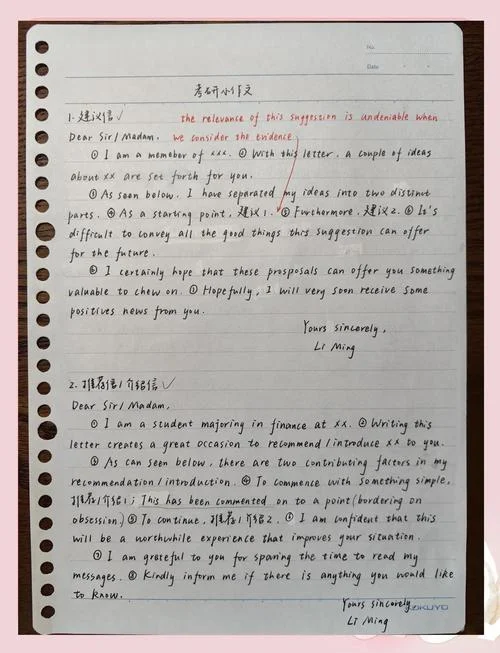 No.
Date
考研小作文
1. 建议信 ✓ the relevance of this suggestion is undeniable when
Dear Sir/Madam, we consider the evidence.
① I am a memeber of xxx. ② With this letter, a couple of ideas
about xx are set forth for you.
③ As seen below, I have separated my ideas into two distinct
parts. ④ As a starting point, 建议1. ⑤ Furthermore, 建议2. ⑥ It's
difficult to convey all the good things this suggestion can offer
for the future.
⑥ I certainly hope that these prosposals can offer you something
valuable to chew on. ⑦ Hopefully, I will very soon receive some
positives news from you.
Yours sincerely,
Li Ming
2. 推荐信/介绍信 ✓
Dear Sir/Madam,
① I am a student majoring in finance at xx. ② Writing this
letter creates a great occasion to recommend/introduce xx to you.
③ As can seen below, there are two contributing factors in my
recommendation/introduction. ④ To commence with something simple,
推荐/介绍1; This has been commented on to a point (bordering on
obsession) ⑤ To continue, 推荐/介绍2. ⑥ I am confident that this
will be a worthwhile experience that improves your situation.
⑦ I am grateful to you for sparing the time to read my
messages. ⑧ Kindly inform me if there is anything you would like
to know.
Yours sincerely
KOKUYO
Li Ming